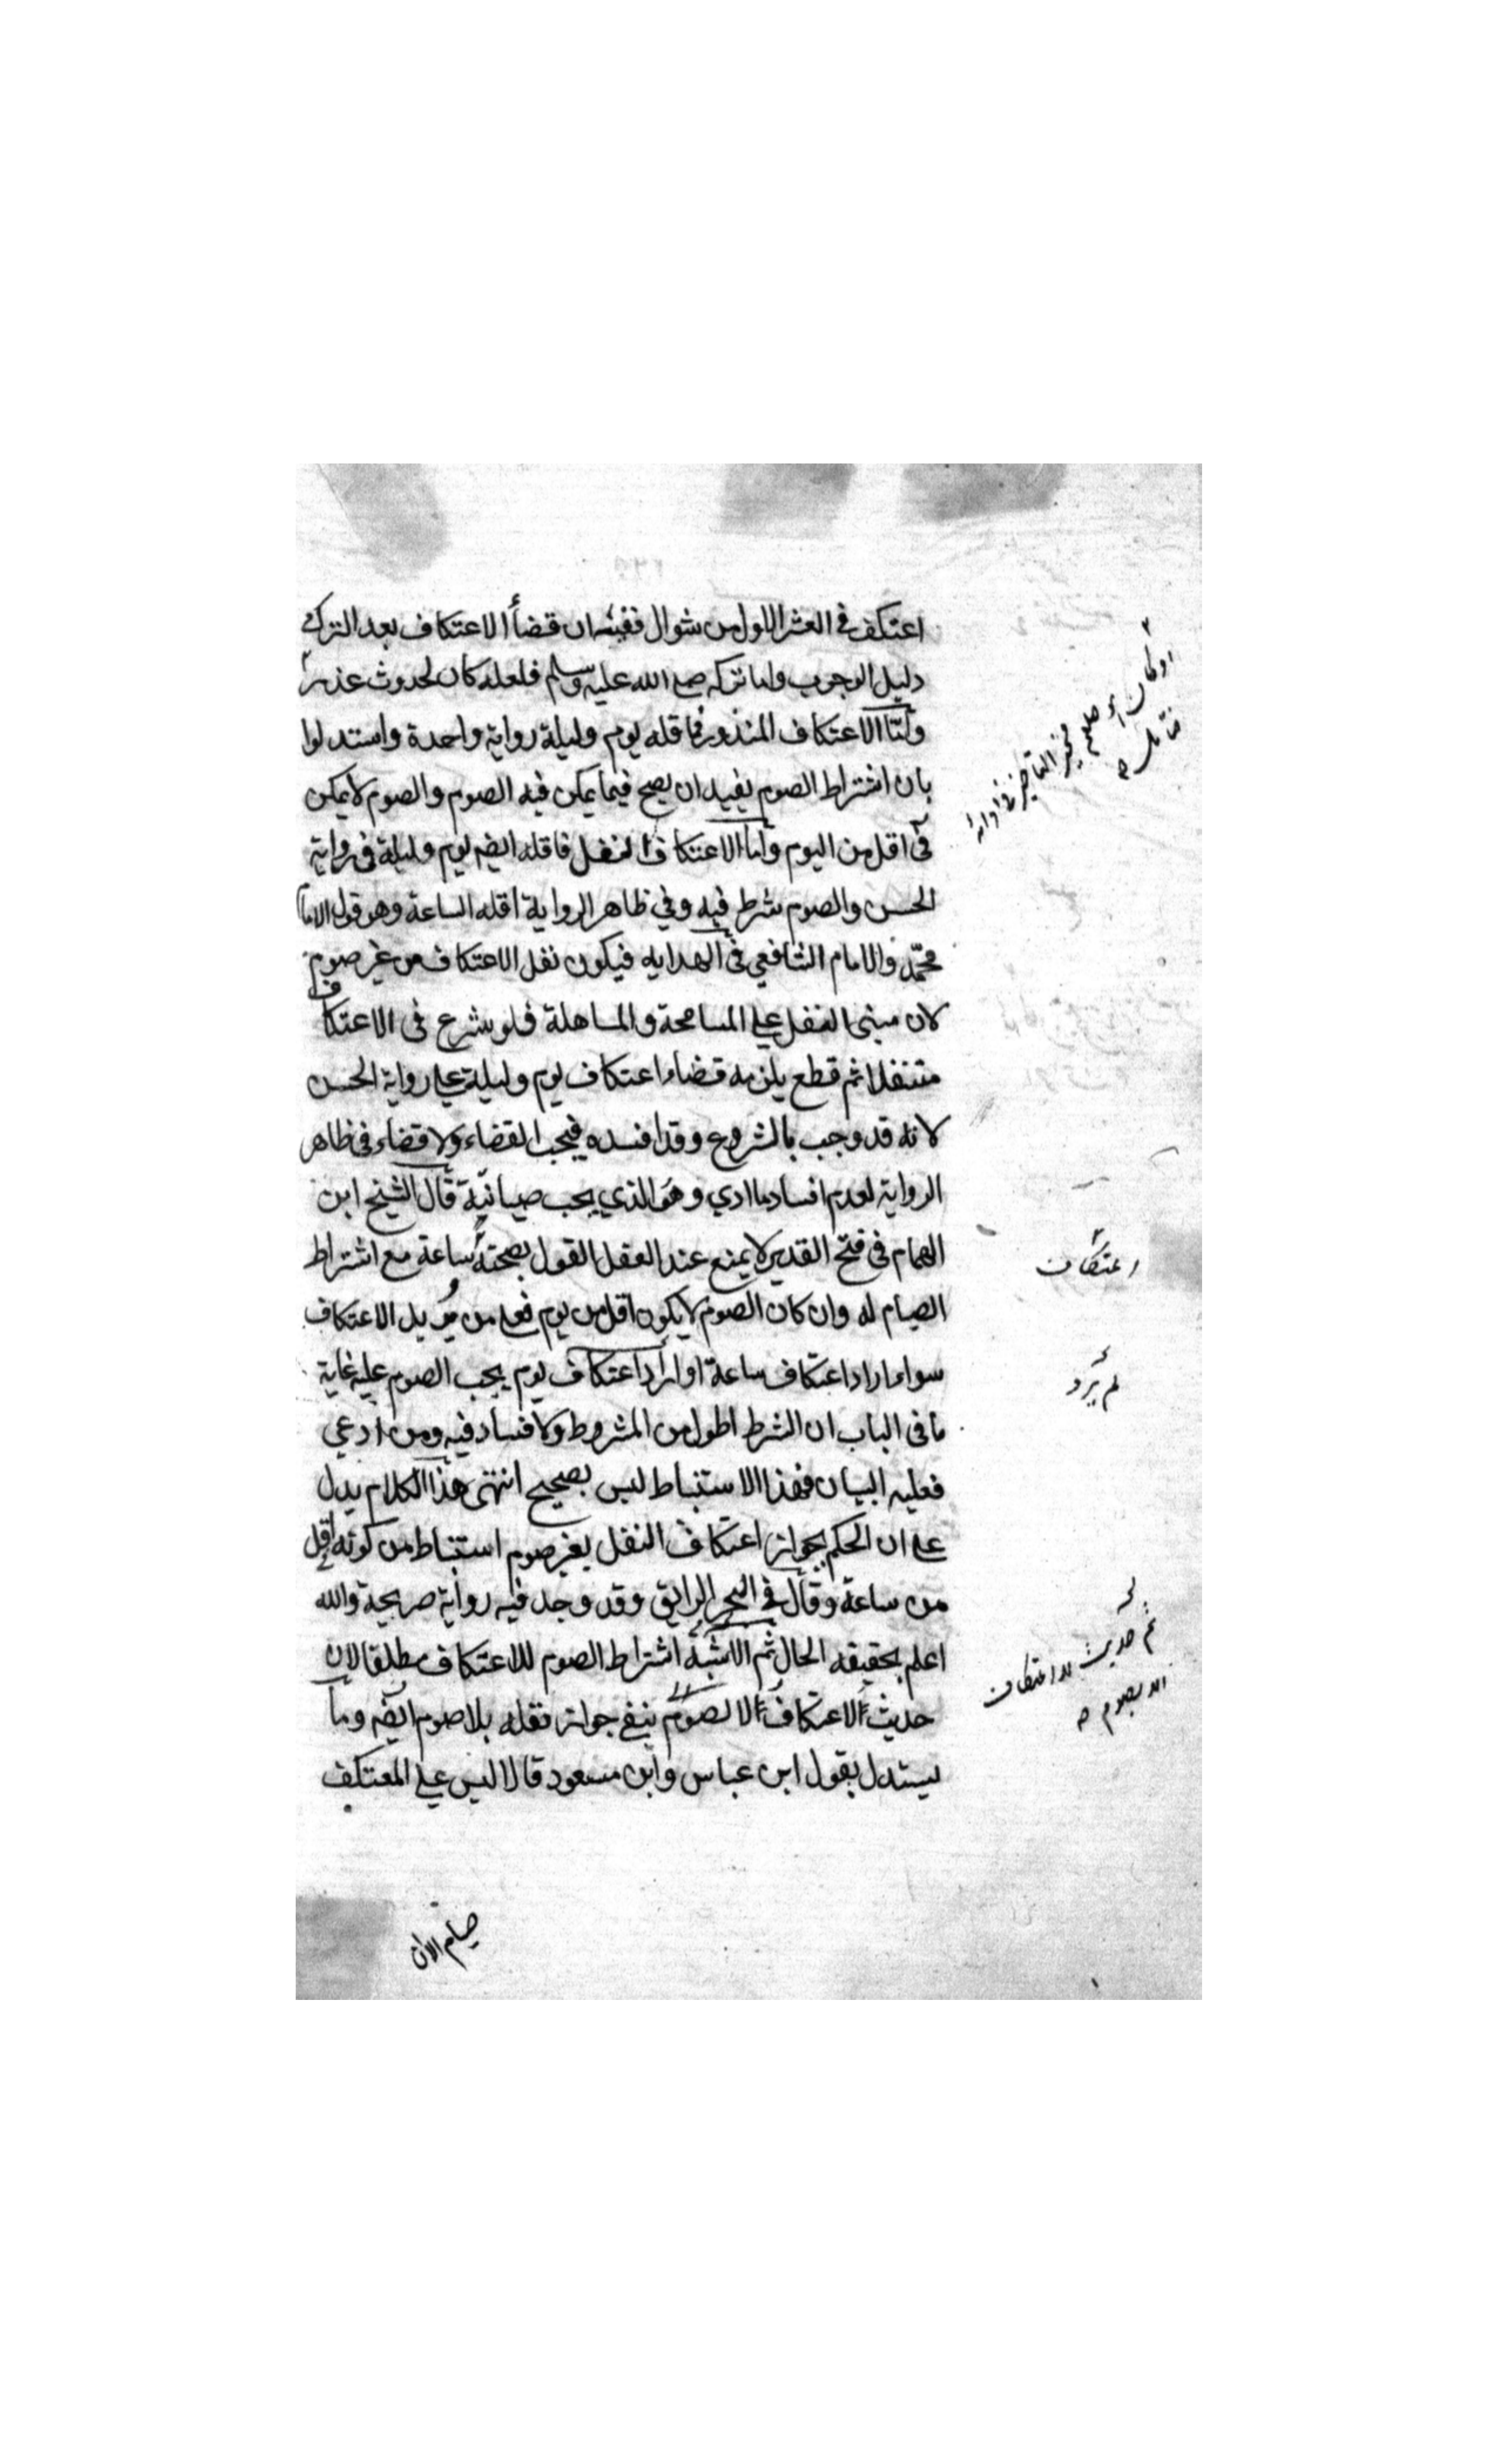 اعتكف في العشر الاول من شوال ففيه ان قضأ الاعتكاف بعد الترك
دليل الوجوب واما تركه صلى الله عليه وسلم فلعله كان لحدوث عذر
واما الاعتكاف المنذور فاقله يوم وليلة رواية واحدة واستدلوا
بان اشتراط الصوم يفيد ان يصح فيما يمكن فيه الصوم والصوم لا يمكن
في اقل من اليوم واما الاعتكاف النفل فاقله ايضه يوم وليلة في رواية
الحسن والصوم شرط فيه وفي ظاهر الرواية اقله الساعة وهو قول الامام
محمد والامام الشافعي في الهدايه فيكون نفل الاعتكاف من غير صوم
لان مبنى النفل على المسامحة والمساهلة فلو شرع في الاعتكاف
متنفلا ثم قطع يلزمه قضاء اعتكاف يوم وليلة على رواية الحسن
لانه قد وجب بالشروع وقد افسده فيجب القضاء ولا قضاء في ظاهر
الرواية لعدم افساد ما ادي وهو الذي يجب صيانته قال الشيخ ابن
الهمام في فتح القدير لا يمنع عند العقل القول بصحته ساعة مع اشتراط
الصيام له وان كان الصوم لا يكون اقل من يوم فعلى من يريد الاعتكاف
سواء اراد اعتكاف ساعة او اراد اعتكاف يوم يجب الصوم عليه غاية
ما في الباب ان الشرط اطول من المشروط ولا فساد فيه ومن ادعي
فعليه البيان فهذا الاستنباط ليس بصحيح انتهى هذا الكلام يدل
على ان الحكم بجواز اعتكاف النفل بغير صوم استنباط من كونه اقل
من ساعة وقال في البحر الرايق وقد وجد فيه رواية صريحة والله
اعلم بحقيقه الحال ثم الاشبه اشتراط الصوم للاعتكاف مطلقا لان
حديث لا اعتكاف الا لصوم ينفي جواز نفله بلا صوم ايضه وما
يستدل بقول ابن عباس وابن مسعود قالا ليس على المعتكف
صيام الا ان
اعتكاف
لم يرد
ثم حديث لا اعتكاف
الا بصوم